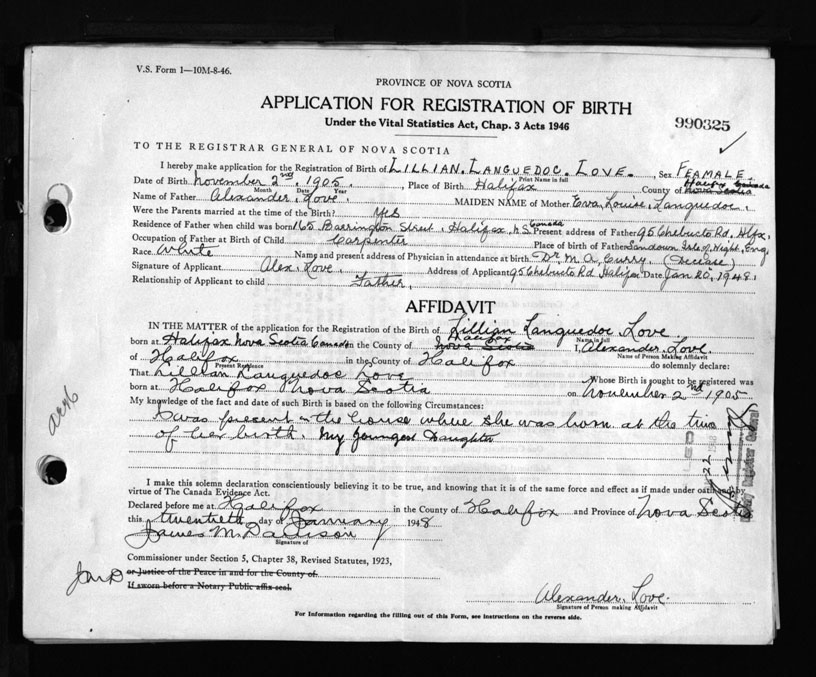 V.S. Form 1—10M-8-46.
PROVINCE OF NOVA SCOTIA
APPLICATION FOR REGISTRATION OF BIRTH
Under the Vital Statistics Act, Chap. 3 Acts 1946
990325
TO THE REGISTRAR GENERAL OF NOVA SCOTIA
I hereby make application for the Registration of Birth of LILLIAN. LANGUEDOC. LOVE. , Sex FEAMALE.
Print Name in full
Halifax Canada
Date of Birth November 2nd. 1905. , Place of Birth Halifax County of Nova Scotia
Month Date Year
Name of Father Alexander Love. MAIDEN NAME of Mother Eva. Louise. Languedoc.
Were the Parents married at the time of the Birth? Yes
Residence of Father when child was born 165 Barrington Street. Halifax. N.S. Canada Present address of Father 95 Chebucto Rd. Hlfx.
Occupation of Father at Birth of Child Carpenter Place of birth of Father Sandown Isle of Wight, Eng,
Race White Name and present address of Physician in attendance at birth Dr. M. A. Curry. (Decease)
Signature of Applicant Alex. Love. Address of Applicant 95 Chebucto Rd Halifax Date Jan 20, 1948.
Relationship of Applicant to child Father.
AFFIDAVIT
IN THE MATTER of the application for the Registration of the Birth of Lillian Languedoc Love
Name in full
born at Halifax Nova Scotia Canada in the County of Halifax Nova Scotia I, Alexander. Love.
Name of Person Making Affidavit
of Halifax in the County of Halifax do solemnly declare:
Present Residence
That Lillian Languedoc Love Whose Birth is sought to be registered was
born at Halifax Nova Scotia on November 2nd 1905
My knowledge of the fact and date of such Birth is based on the following Circumstances:
I was present in the house where she was born at the time
of her birth. My youngest Daughter
I make this solemn declaration conscientiously believing it to be true, and knowing that it is of the same force and effect as if made under oath and by
virtue of The Canada Evidence Act.
Declared before me at Halifax in the County of Halifax and Province of Nova Scotia
this twentieth day of January 1948
James M. Davison
Signature of
Commissioner under Section 5, Chapter 38, Revised Statutes, 1923,
JMD or Justice of the Peace in and for the County of
If sworn before a Notary Public affix seal.
Alexander. Love.
Signature of Person making Affidavit
For Information regarding the filling out of this Form, see Instructions on the reverse side.